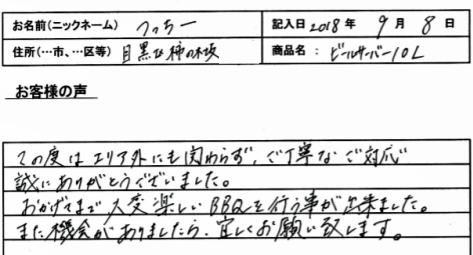 お名前(ニックネーム) つっちー 記入日 2018年 9月 8日
住所(…市、…区等) 目黒区柿の木坂 商品名: ビールサーバー10L
お客様の声
この度はエリア外にも関わらず、ご丁寧なご対応
誠にありがとうございました。
おかげさまで大変楽しいBBQを行う事が出来ました。
また機会がありましたら、宜しくお願い致します。